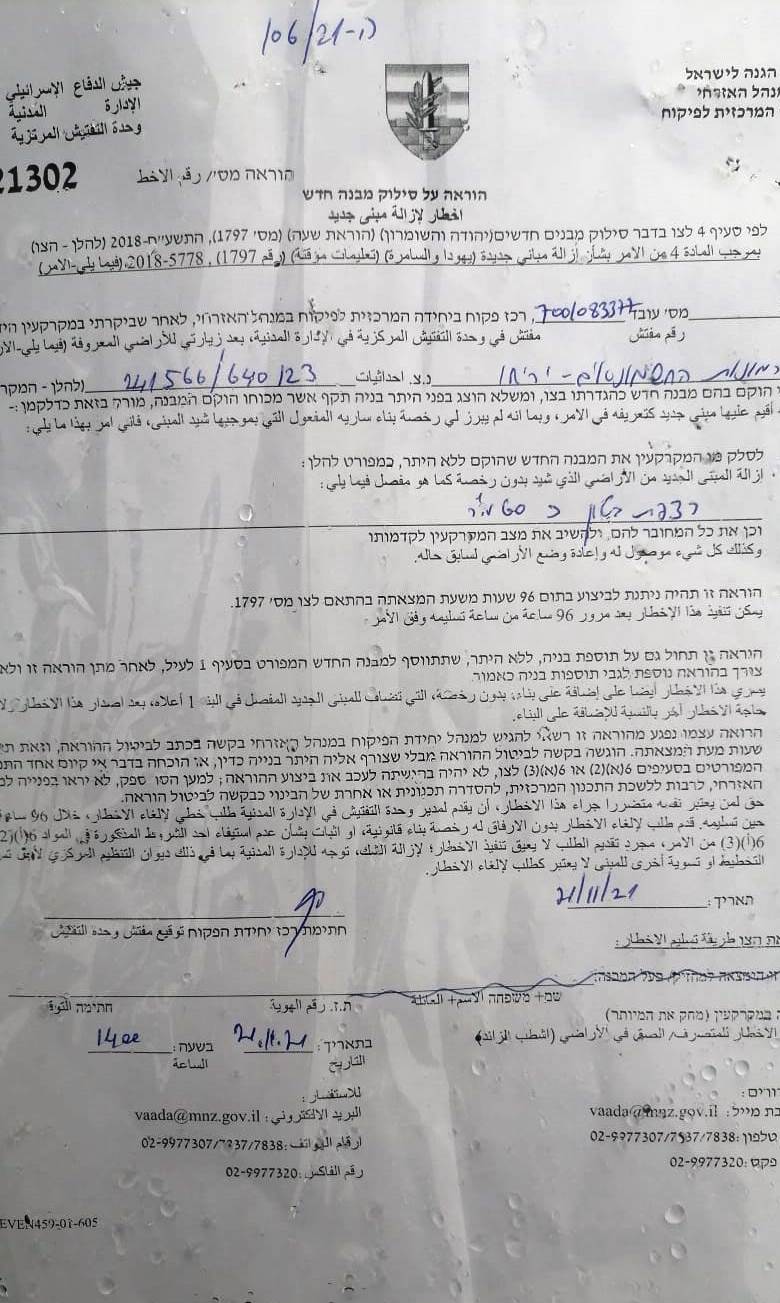 ה-06/21
הגנה לישראל
המרכזית לפיקוח
جيش الدفاع الإسرائيلي
الإدارة المدنية
وحدة التفتيش المركزية
21302
הוראה מס'/ رقم الاخط
הוראה על סילוק מבנה חדש
اخطار لإزالة مبنى جديد
לפי סעיף 4 לצו בדבר סילוק מבנים חדשים(יהודה והשומרון) (הוראת שעה) (מס' 1797), התשע"ח-2018 (להלן - הצו)
بموجب المادة 4 من الامر بشأن إزالة مباني جديدة (يهودا والسامرة) (تعليمات مؤقتة) (رقم 1797) , 5778-2018,(فيما يلي-الامر)
מס' עובד 700/083377, רכז פקוח ביחידה המרכזית לפיקוח במנהל האזרחי, לאחר שביקרתי במקרקעין
رقم مفتش مفتش في وحدة التفتيش المركزية في الإدارة المدنية, بعد زيارتي للأراضي المعروفة (فيما يلي-
החשמונאים - יריחו נ.צ. احداثيات 241566/640123 (להלן -
הוקם בהם מבנה חדש כהגדרתו בצו, ומשלא הוצג בפני היתר בניה תקף אשר מכוחו הוקם המבנה, מורה בזאת כדלקמן:-
أقيم عليها مبنى جديد كتعريفه في الامر, وبما انه لم يبرز لي رخصة بناء سارية المفعول التي بموجبها شيد المبنى, فأني امر بهذا ما يلي:
לסלק מן המקרקעין את המבנה החדש שהוקם ללא היתר, כמפורט להלן:
ازالة المبنى الجديد من الأراضي الذي شيد بدون رخصة كما هو مفصل فيما يلي:
רצפת בטון
וכן את כל המחובר להם, ולהשיב את מצב המקרקעין לקדמותו
وكذلك كل شيء موصول له وإعادة وضع الأراضي لسابق حاله.
הוראה זו תהיה ניתנת לביצוע בתום 96 שעות משעת המצאתה בהתאם לצו מס' 1797.
يمكن تنفيذ هذا الإخطار بعد مرور 96 ساعة من ساعة تسليمه وفق الأمر
הוראה זו תחול גם על תוספת בניה, ללא היתר, שתתווסף למבנה החדש המפורט בסעיף 1 לעיל, לאחר מתן הוראה זו ולא
צורך בהוראה נוספת לגבי תוספות בניה כאמור.
يسري هذا الاخطار أيضا على إضافة على بناء, بدون رخصة, التي تضاف للمبنى الجديد المفصل في البند 1 أعلاه, بعد اصدار هذا الاخطار
حاجة الاخطار آخر بالنسبة للإضافة على البناء.
הרואה עצמו נפגע מהוראה זו רשאי להגיש למנהל יחידת הפיקוח במנהל האזרחי בקשה בכתב לביטול ההוראה, וזאת
שעות מעת המצאתה. הוגשה בקשה לביטול ההוראה מבלי שצורף אליה היתר בנייה כדין, או הוכחה בדבר אי קיום אחד
המפורטים בסעיפים 6(א)(2) או 6(א)(3) לצו, לא יהיה בהגשתה לעכב את ביצוע ההוראה; למען הסר ספק, לא יראו בפנייה
האזרחי, לרבות ללשכת התכנון המרכזית, להסדרה תכנונית או אחרת של הבינוי כבקשה לביטול הוראה.
حق لمن يعتبر نفسه متضررا جراء هذا الاخطار, أن يقدم لمدير وحدة التفتيش في الإدارة المدنية طلب خطي لإلغاء الاخطار, خلال 96
حين تسليمه. قدم طلب لإلغاء الاخطار بدون الارفاق له رخصة بناء قانونية, او اثبات بشأن عدم استيفاء احد الشروط المذكورة في المواد
6(أ)(3) من الامر, مجرد تقديم الطلب لا يعيق تنفيذ الاخطار; لإزالة الشك, توجه للإدارة المدنية بما في ذلك ديوان التنظيم المركزي
التخطيط او تسوية أخرى للمبنى لا يعتبر كطلب لإلغاء الاخطار.
תאריך: 21/11/21
חתימת רכז יחידת הפקוח توقيع مفتش وحدة التفتيش
את הצו طريقة تسليم الاخطار:
שם+ משפחה الاسم+ العائلة
ת.ז. رقم الهوية
חתימה
במקרקעין (מחק את המיותר)
الاخطار للمتصرف الصق في الأراضي (اشطب الزائد)
בתאריך: 21.11.21
التاريخ
בשעה: 1400
الساعة
للاستفسار:
البريد الالكتروني: vaada@mnz.gov.il
ارقام الهواتف: 02-9977307/7537/7838
رقم الفاكس: 02-9977320
מייל: vaada@mnz.gov.il
טלפון: 02-9977307/7537/7838
פקס: 02-9977320
EVEN459-01-605